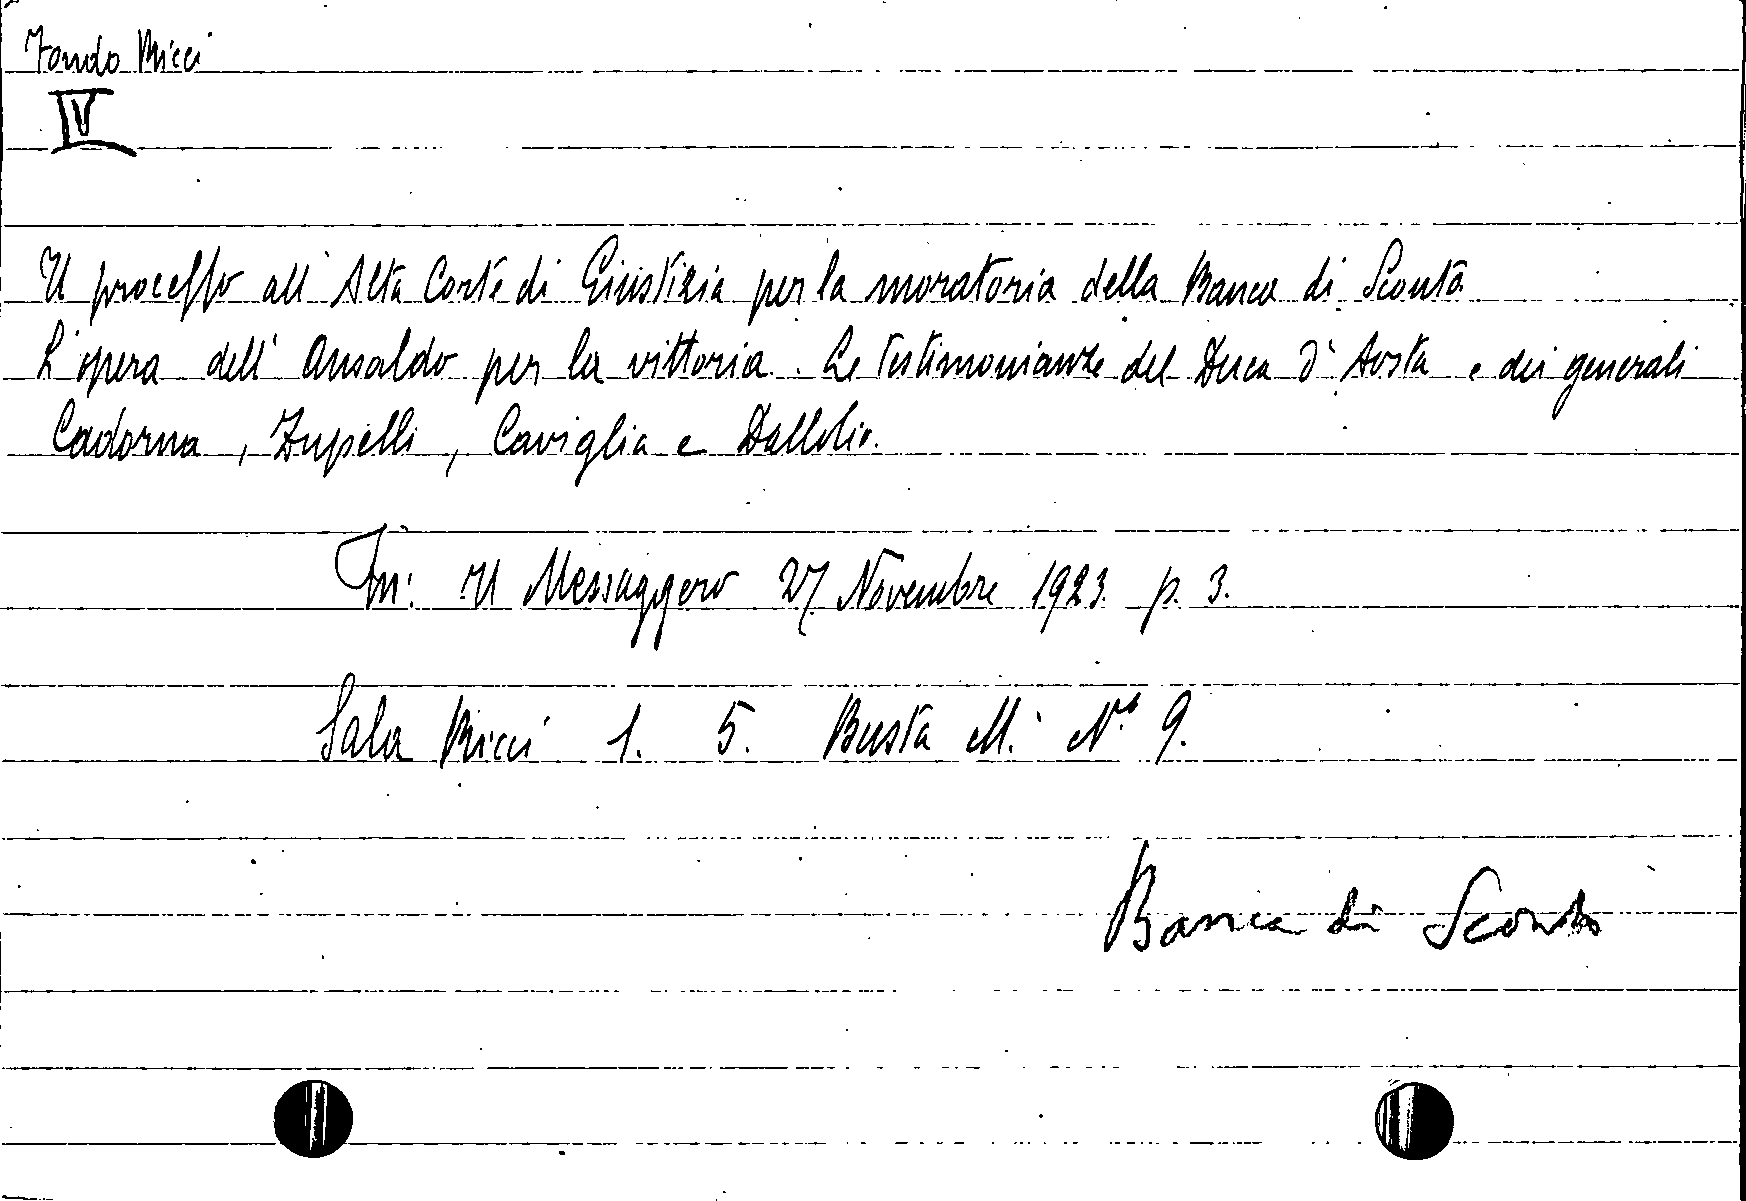 Fondo Ricci
IV
Il processo all' Alta Corte di Giustizia per la moratoria della Banca di Sconto
L'opera dell' Ansaldo per la vittoria. Le testimonianze del Duca d'Aosta e dei generali
Cadorna, Zupelli, Caviglia e Dallolio.
In: Il Messaggero 27 Novembre 1923 p. 3.
Sala Ricci 1. 5. Busta M. N.º 9.
Banca di Sconto